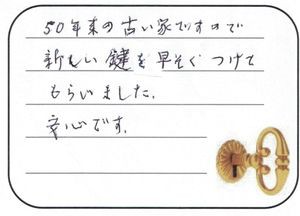 50年来の古い家ですので
新しい鍵を早そくつけて
もらいました.
安心です.